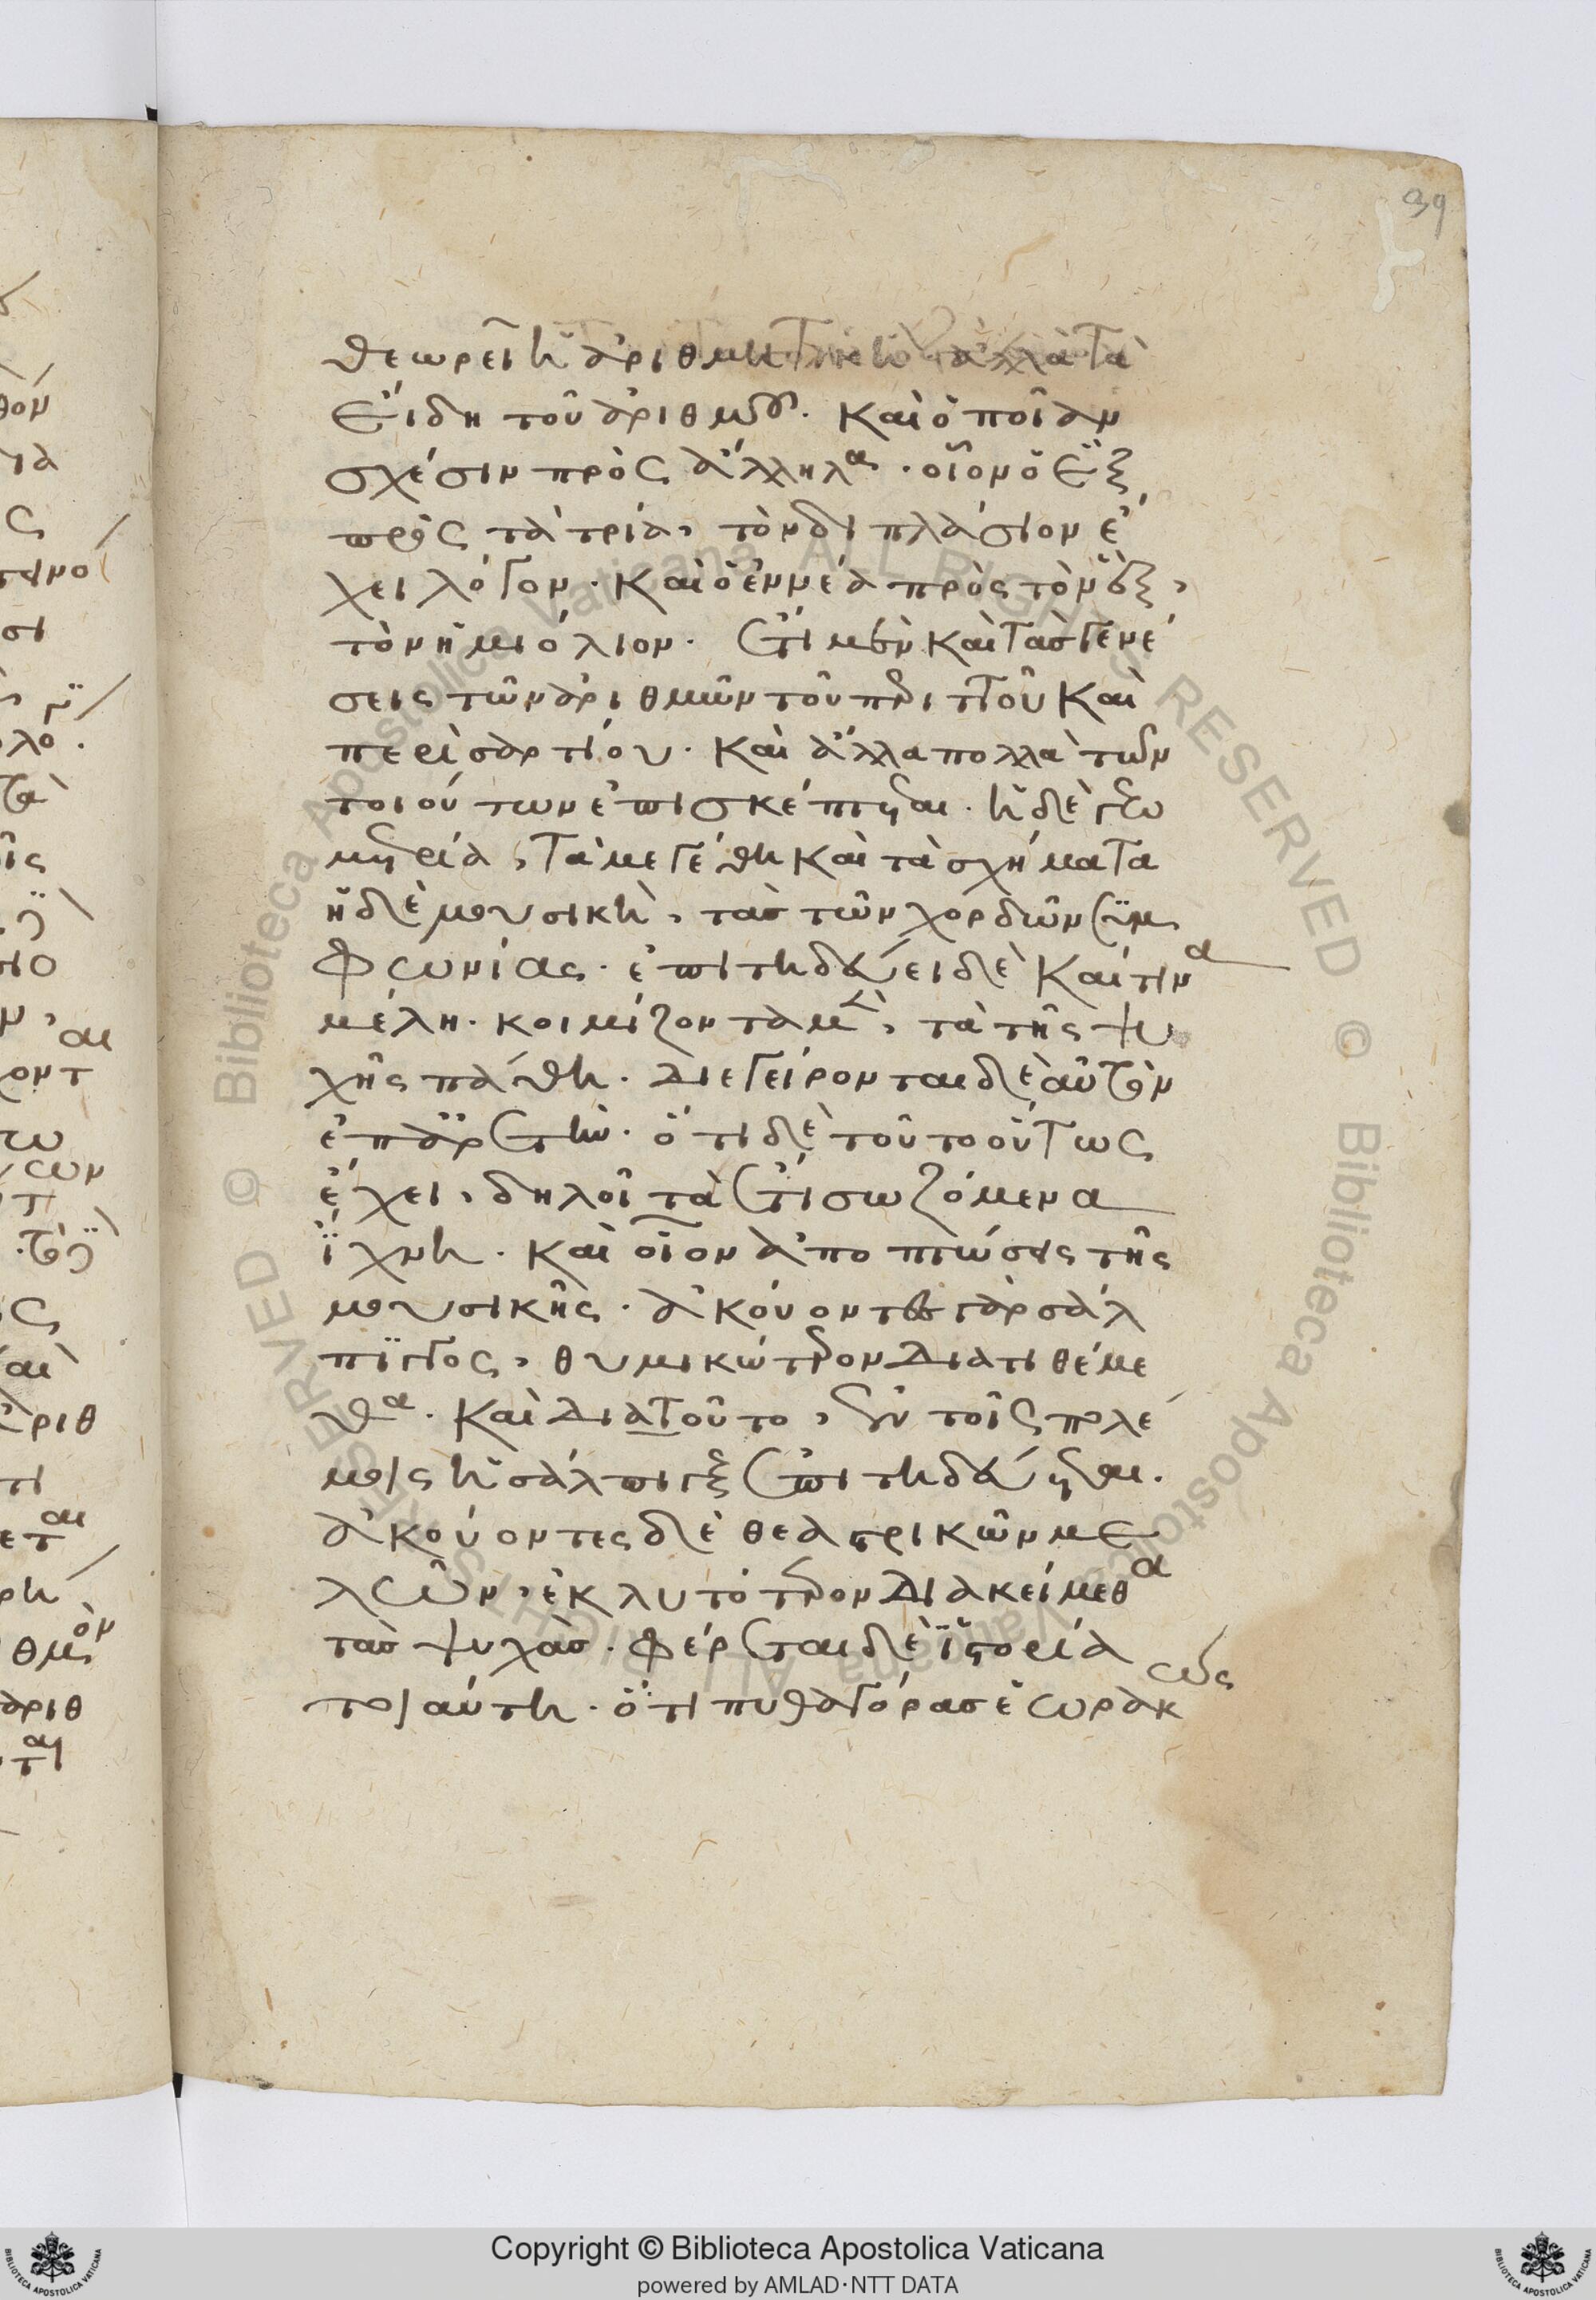 39
θεωρεῖ ἡ ἀριθμητικὴ ἀλλὰ τὰ
εἴδη τοῦ ἀριθμοῦ. καὶ ὁποίαν
σχέσιν πρὸς ἄλληλα. οἷον ὁ ἓξ
πρὸς τὰ τρία, τὸν διπλάσιον ἔ
χει λόγον. καὶ ὁ ἐννέα πρὸς τὸν ἓξ,
τὸν ἡμιόλιον. ἔτι μὴν καὶ τὰς γενέ
σεις τῶν ἀριθμῶν τοῦ περιττοῦ καὶ
περισαρτίου. καὶ ἄλλα πολλὰ τῶν
τοιούτων ἐπισκέπτεται. ἡ δὲ γεω
μετρία, τὰ μεγέθη καὶ τὰ σχήματα
ἡ δὲ μουσικὴ, τὰς τῶν χορδῶν συμ
φωνίας. ἐπιτηδεύει δὲ καί τινα
μέλη. κοιμίζονται μὲν, τὰ τῆς ψυ
χῆς πάθη. διεγείρονται δὲ αὐτὸν
ἐπ ἀρετήν. ὅτι δὲ τοῦτο οὕτως
ἔχει, δηλοῖ τὰ ἔτι σωζόμενα
ἴχνη. καὶ οἷον ἀποπτώσεις τῆς
μουσικῆς. ἀκούοντες γὰρ σάλ
πιγγος, θυμικώτερον διατιθέμε
θα. καὶ διατοῦτο, ἐν τοῖς πολέ
μοις ἡ σάλπιγξ ἐπιτηδεύεται.
ἀκούοντες δὲ θεατρικῶν με
λῶν, ἐκλυτότερον διακείμεθα
τὰς ψυχάς. φέρεται δὲ ἱστορία
τοιαύτη. ὅτι πυθαγόρας ἑωρακὼς
Copyright © Biblioteca Apostolica Vaticana
powered by AMLAD·NTT DATA